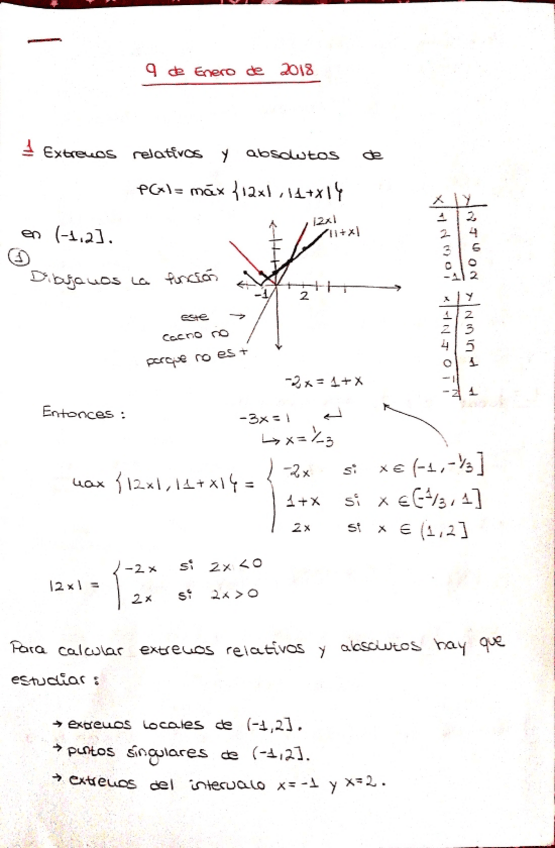 9 de Enero de 2018
1 Extremos relativos y absolutos de
P(x) = máx {|2x|, |1+x|}
en (-1,2].
① Dibujamos la función
|2x|
|1+x|
-1 2
este →
cacho no
porque no es +
x | y
1 | 2
2 | 4
3 | 6
0 | 0
-1 | 2
x | y
1 | 2
2 | 3
4 | 5
0 | 1
-1 |
-2 | 1
-2x = 1+x
Entonces : -3x = 1 ↵
↳ x = 1/-3
max {|2x|, |1+x|} = { -2x si x ∈ (-1, -1/3]
1+x si x ∈ (-1/3, 1]
2x si x ∈ (1, 2]
|2x| = { -2x si 2x < 0
2x si 2x > 0
Para calcular extremos relativos y absolutos hay que
estudiar :
→ extremos locales de (-1,2].
→ puntos singulares de (-1,2].
→ extremos del intervalo x = -1 y x = 2.